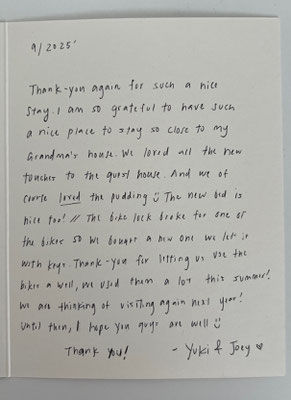 9/2025'
Thank-you again for such a nice
stay. I am so grateful to have such
a nice place to stay so close to my
Grandma's house. We loved all the new
touches to the guest house. And we of
course loved the pudding ü The new bed is
nice too! // The bike lock broke for one of
the bikes so we bought a new one we left it
with keys. Thank-you for letting us use the
bikes a well, we used them a lot this summer!
We are thinking of visiting again next year!
Until then, I hope you guys are well ü
Thank you!
- Yuki & Joey ♥